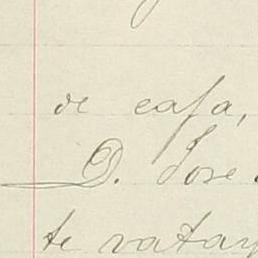 de casa,
D. Jose
te vatay